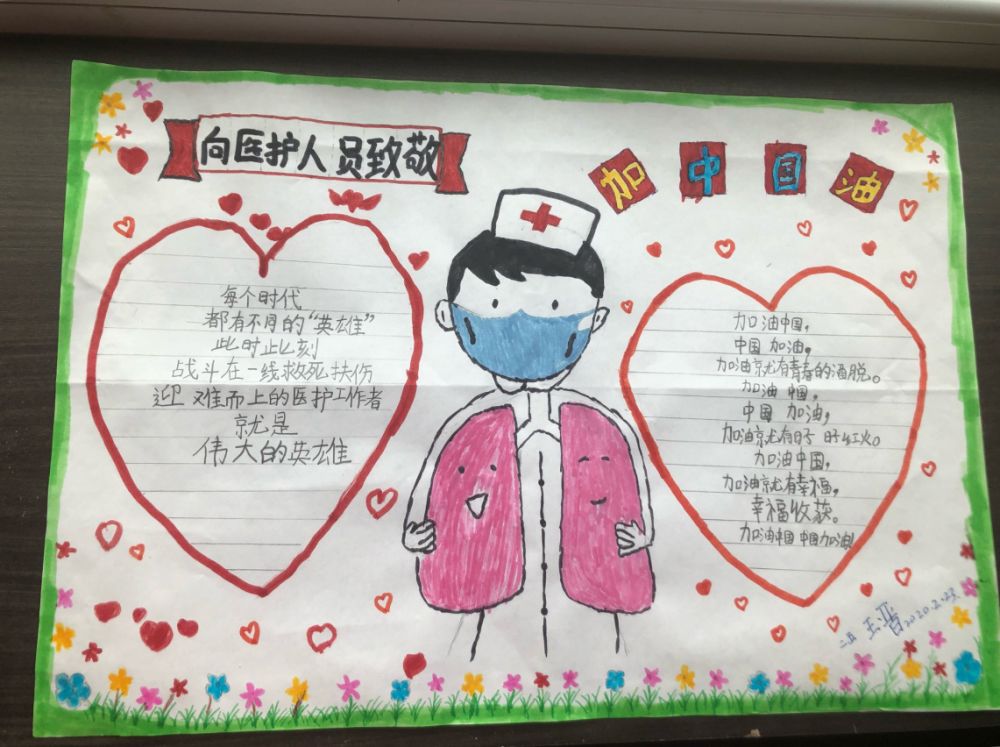 向医护人员致敬
加中国油
每个时代
都有不同的“英雄”
此时此刻
战斗在一线救死扶伤
迎难而上的医护工作者
就是
伟大的英雄
加油中国,
中国加油,
加油就有青春的洒脱。
加油中国,
中国加油,
加油就有日子的红火。
加油中国,
加油就有幸福,
幸福收获。
加油中国中国加油!
2020.2.23